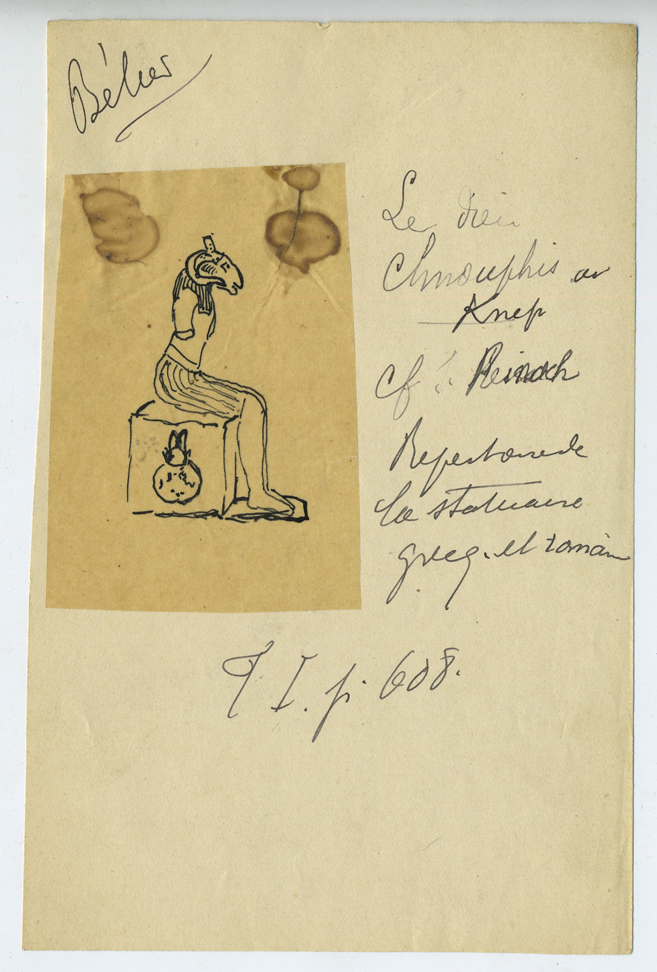 Bélier
Le dieu
Chnouphis ou
Knep
cf. Reinach
Repertoire de
la statuaire
grecq. et romain
T I. p. 608.